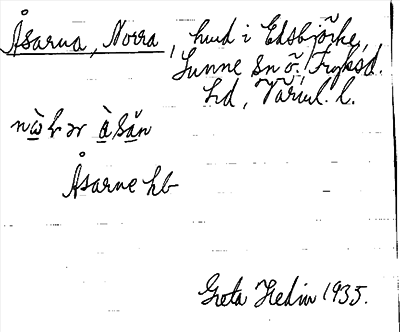 Åsarna, Norra, hmd i Edsbjörke,
Sunne sn ö., Fryksd.
hd, Värml. l.
nὼŀər ὰsȧ̤n
Åsarne hb
Greta Hedin 1935.